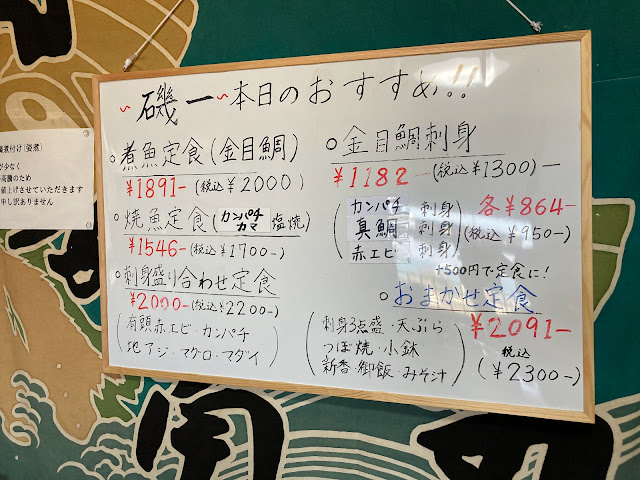 磯一 ~本日のおすすめ!!
煮魚定食(金目鯛)
¥1891-(税込¥2000)
焼魚定食(カンパチカマ 塩焼)
¥1546-(税込¥1700-)
刺身盛り合わせ定食
¥2000-(税込¥2200-)
(有頭赤エビ・カンパチ
地アジ・マグロ・マダイ)
金目鯛刺身
¥1182-(税込¥1300)-
カンパチ 刺身
真鯛 刺身
赤エビ 刺身
各¥864-
(税込¥950-)
+500円で定食に!
おまかせ定食
(刺身3点盛・天ぷら
つぼ焼・小鉢
新香・御飯・みそ汁)
¥2091-
税込
(¥2300-)
煮付け(姿煮)
少なく
高騰のため
値上げさせていただきます
申し訳ありません